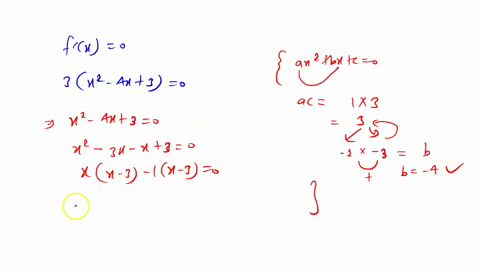 f'(x) = 0
3(x² - 4x + 3) = 0
⇒ x² - 4x + 3 = 0
x² - 3x - x + 3 = 0
x(x-3) - 1(x-3) = 0
{ ax² + bx + c = 0
ac = 1 × 3
= 3
-1 × -3 = b
+ b = -4 ✓
}